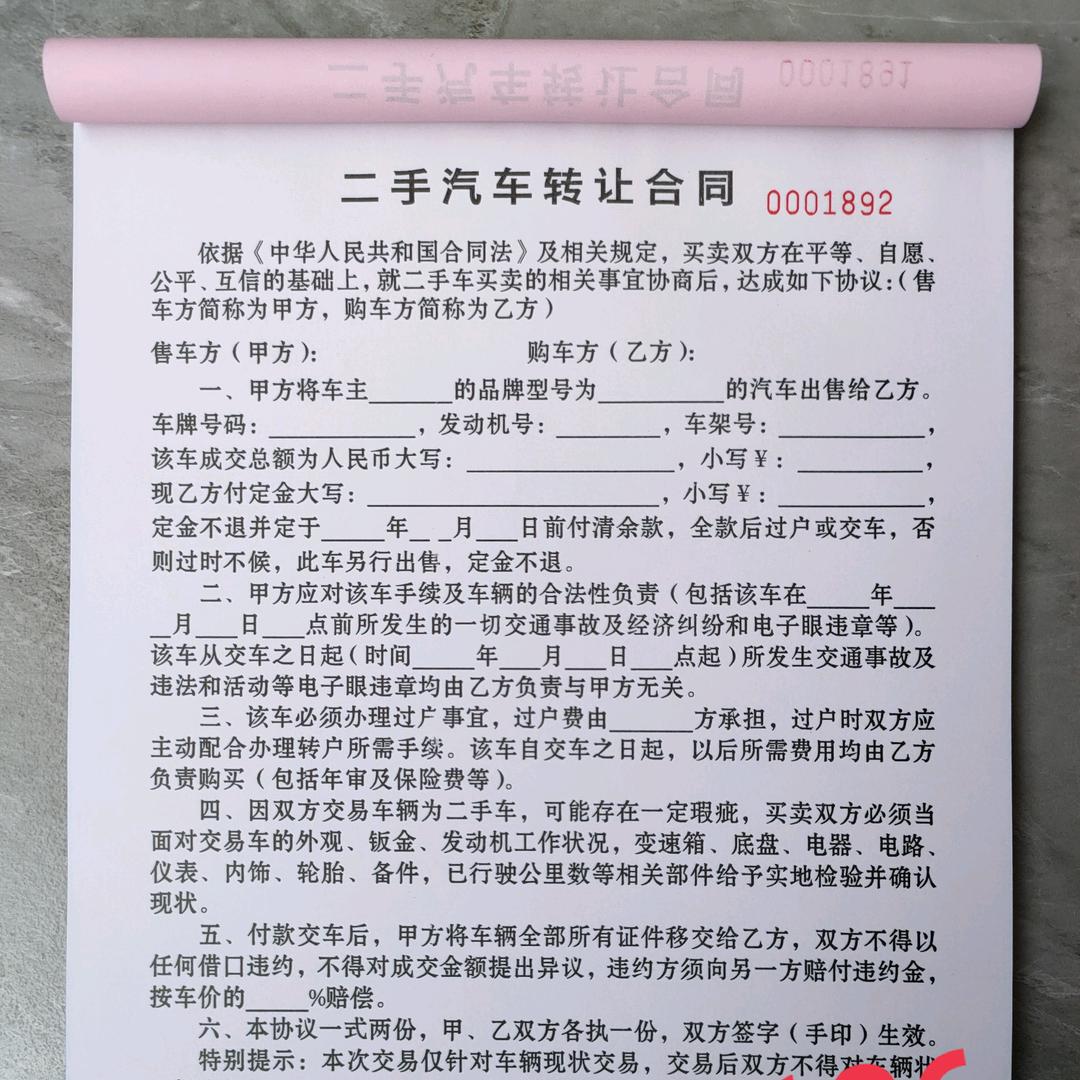 二手汽车转让合同 0001891
二手汽车转让合同 0001892
依据《中华人民共和国合同法》及相关规定，买卖双方在平等、自愿、
公平、互信的基础上，就二手车买卖的相关事宜协商后，达成如下协议：（售
车方简称为甲方，购车方简称为乙方）
售车方（甲方）： 购车方（乙方）：
一、甲方将车主______的品牌型号为_________的汽车出售给乙方。
车牌号码：__________，发动机号：_______，车架号：__________，
该车成交总额为人民币大写：______________，小写¥：_________，
现乙方付定金大写：____________________，小写¥：__________，
定金不退并定于____年_ _月___日前付清余款，全款后过户或交车，否
则过时不候，此车另行出售，定金不退。
二、甲方应对该车手续及车辆的合法性负责（包括该车在____年___
_月___日___点前所发生的一切交通事故及经济纠纷和电子眼违章等）。
该车从交车之日起（时间____年___月___日___点起）所发生交通事故及
违法和活动等电子眼违章均由乙方负责与甲方无关。
三、该车必须办理过户事宜，过户费由______方承担，过户时双方应
主动配合办理转户所需手续。该车自交车之日起，以后所需费用均由乙方
负责购买（包括年审及保险费等）。
四、因双方交易车辆为二手车，可能存在一定瑕疵，买卖双方必须当
面对交易车的外观、钣金、发动机工作状况，变速箱、底盘、电器、电路、
仪表、内饰、轮胎、备件，已行驶公里数等相关部件给予实地检验并确认
现状。
五、付款交车后，甲方将车辆全部所有证件移交给乙方，双方不得以
任何借口违约，不得对成交金额提出异议，违约方须向另一方赔付违约金，
按车价的____%赔偿。
六、本协议一式两份，甲、乙双方各执一份，双方签字（手印）生效。
特别提示：本次交易仅针对车辆现状交易，交易后双方不得对车辆状